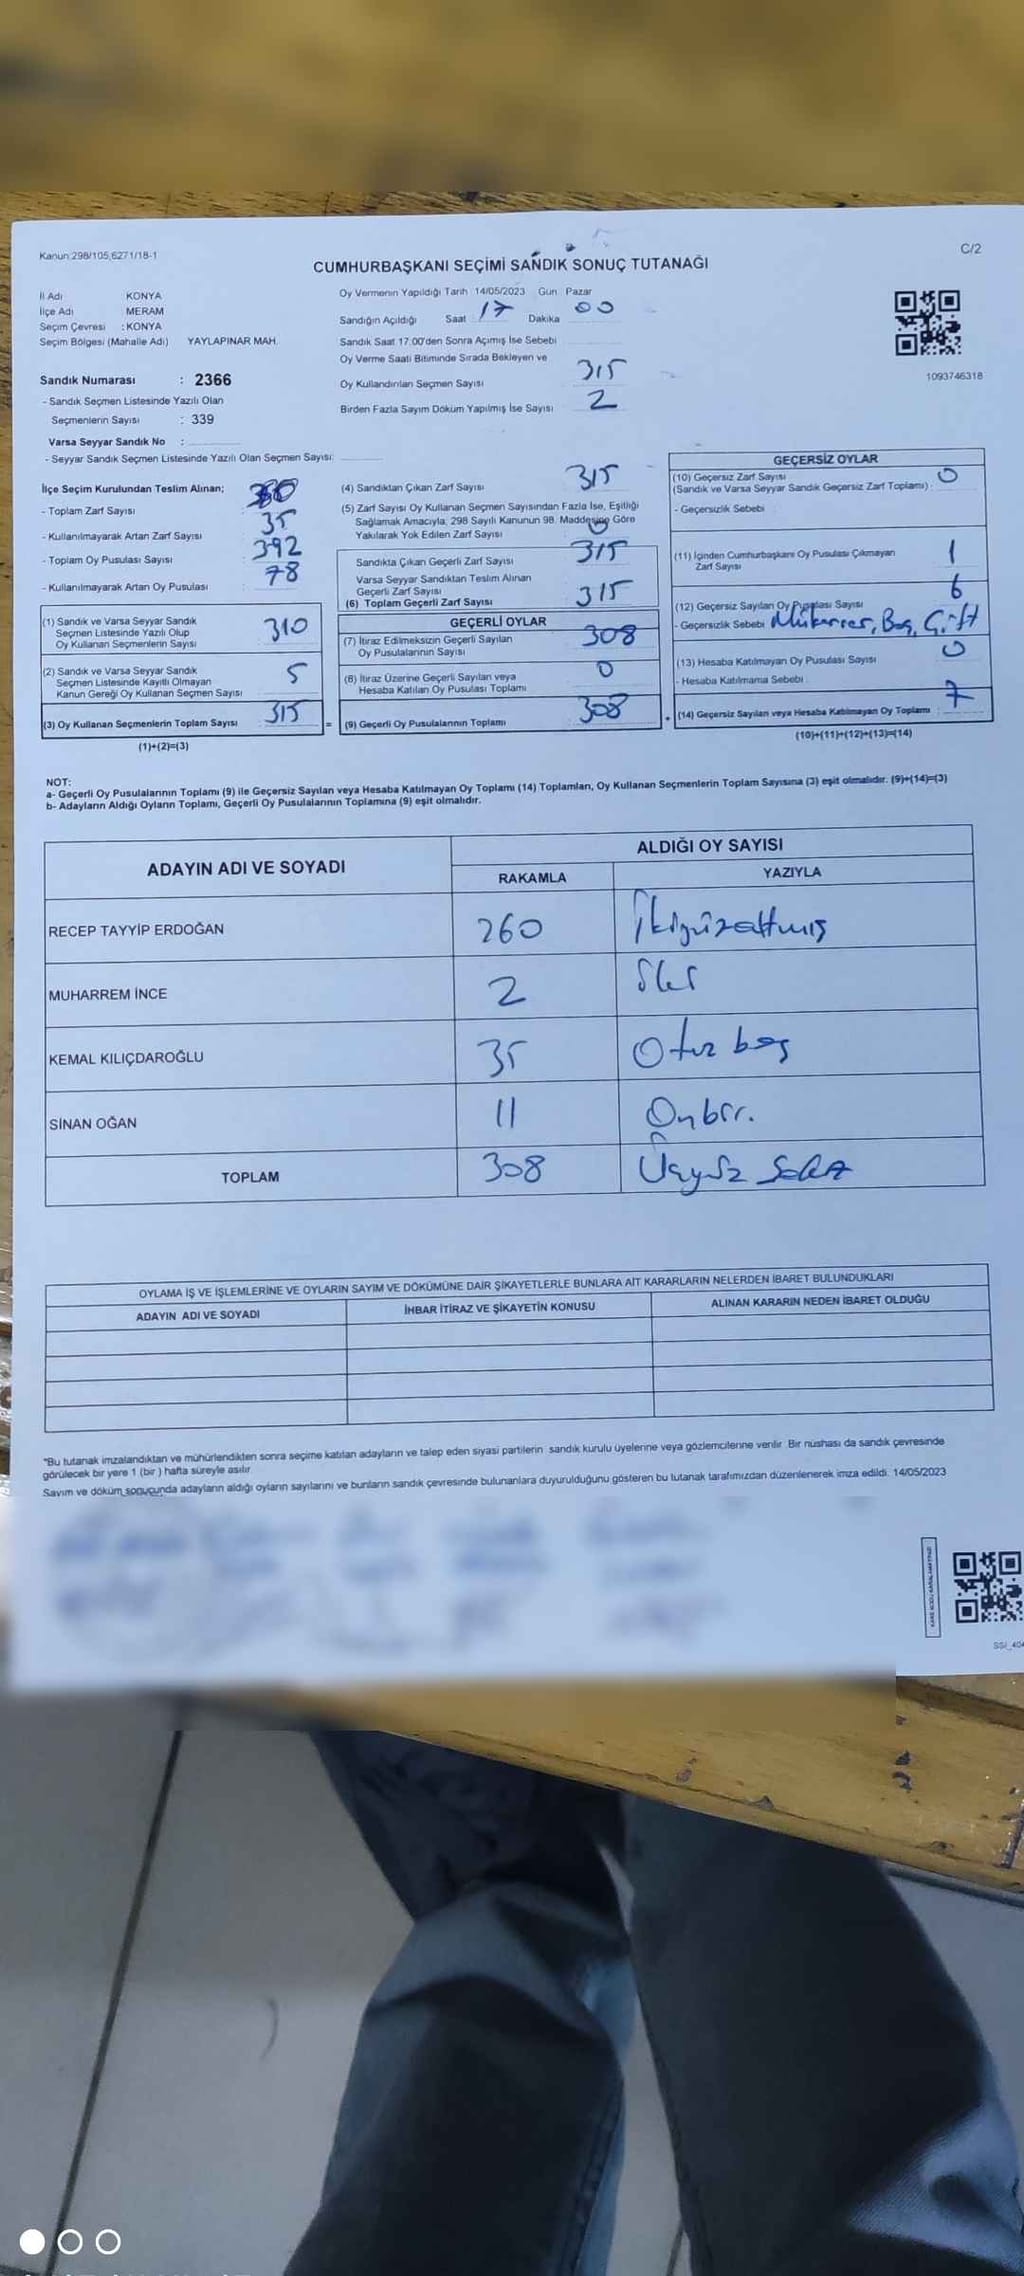 Kanun:298/105,6271/18-1
C/2
CUMHURBAŞKANI SEÇİMİ SANDIK SONUÇ TUTANAĞI
İl Adı KONYA
İlçe Adı MERAM
Seçim Çevresi : KONYA
Seçim Bölgesi (Mahalle Adı) YAYLAPINAR MAH.
Sandık Numarası : 2366
- Sandık Seçmen Listesinde Yazılı Olan
Seçmenlerin Sayısı : 339
Varsa Seyyar Sandık No :
- Seyyar Sandık Seçmen Listesinde Yazılı Olan Seçmen Sayısı:
Oy Vermenin Yapıldığı Tarih 14/05/2023 Gün Pazar
Sandığın Açıldığı Saat 17 Dakika 00
Sandık Saat 17.00'den Sonra Açımış İse Sebebi
Oy Verme Saati Bitiminde Sırada Bekleyen ve
Oy Kullandırılan Seçmen Sayısı 315
Birden Fazla Sayım Döküm Yapılmış İse Sayısı 2
1093746318
İlçe Seçim Kurulundan Teslim Alınan;
- Toplam Zarf Sayısı
- Kullanılmayarak Artan Zarf Sayısı 35
- Toplam Oy Pusulası Sayısı 392
- Kullanılmayarak Artan Oy Pusulası 78
(1) Sandık ve Varsa Seyyar Sandık
Seçmen Listesinde Yazılı Olup
Oy Kullanan Seçmenlerin Sayısı 310
(2) Sandık ve Varsa Seyyar Sandık
Seçmen Listesinde Kayıtlı Olmayan
Kanun Gereği Oy Kullanan Seçmen Sayısı 5
(3) Oy Kullanan Seçmenlerin Toplam Sayısı 315 =
(1)+(2)=(3)
(4) Sandıktan Çıkan Zarf Sayısı 315
(5) Zarf Sayısı Oy Kullanan Seçmen Sayısından Fazla İse, Eşitliği
Sağlamak Amacıyla, 298 Sayılı Kanunun 98. Maddesine Göre
Yakılarak Yok Edilen Zarf Sayısı 0
Sandıkta Çıkan Geçerli Zarf Sayısı 315
Varsa Seyyar Sandıktan Teslim Alınan
Geçerli Zarf Sayısı
(6) Toplam Geçerli Zarf Sayısı 315
GEÇERLİ OYLAR
(7) İtiraz Edilmeksizin Geçerli Sayılan
Oy Pusulalarının Sayısı 308
(8) İtiraz Üzerine Geçerli Sayılan veya
Hesaba Katılan Oy Pusulası Toplamı 0
(9) Geçerli Oy Pusulalarının Toplamı 308 +
GEÇERSİZ OYLAR
(10) Geçersiz Zarf Sayısı
(Sandık ve Varsa Seyyar Sandık Geçersiz Zarf Toplamı) : 0
- Geçersizlik Sebebi
(11) İçinden Cumhurbaşkanı Oy Pusulası Çıkmayan
Zarf Sayısı 1
(12) Geçersiz Sayılan Oy Pusulası Sayısı 6
- Geçersizlik Sebebi Mükerrer, Boş, Çift
(13) Hesaba Katılmayan Oy Pusulası Sayısı 0
- Hesaba Katılmama Sebebi
(14) Geçersiz Sayılan veya Hesaba Katılmayan Oy Toplamı : 7
(10)+(11)+(12)+(13)=(14)
NOT:
a- Geçerli Oy Pusulalarının Toplamı (9) ile Geçersiz Sayılan veya Hesaba Katılmayan Oy Toplamı (14) Toplamları, Oy Kullanan Seçmenlerin Toplam Sayısına (3) eşit olmalıdır. (9)+(14)=(3)
b- Adayların Aldığı Oyların Toplamı, Geçerli Oy Pusulalarının Toplamına (9) eşit olmalıdır.
ADAYIN ADI VE SOYADI ALDIĞI OY SAYISI
RAKAMLA YAZIYLA
RECEP TAYYİP ERDOĞAN 260 İkiyüzaltmış
MUHARREM İNCE 2 İki
KEMAL KILIÇDAROĞLU 35 Otuz beş
SİNAN OĞAN 11 Onbir.
TOPLAM 308 Üçyüz Sekiz
OYLAMA İŞ VE İŞLEMLERİNE VE OYLARIN SAYIM VE DÖKÜMÜNE DAİR ŞİKAYETLERLE BUNLARA AİT KARARLARIN NELERDEN İBARET BULUNDUKLARI
ADAYIN ADI VE SOYADI İHBAR İTİRAZ VE ŞİKAYETİN KONUSU ALINAN KARARIN NEDEN İBARET OLDUĞU
*Bu tutanak imzalandıktan ve mühürlendikten sonra seçime katılan adayların ve talep eden siyasi partilerin sandık kurulu üyelerine veya gözlemcilerine verilir. Bir nüshası da sandık çevresinde
görülecek bir yere 1 (bir) hafta süreyle asılır.
Sayım ve döküm sonucunda adayların aldığı oyların sayılarını ve bunların sandık çevresinde bulunanlara duyurulduğunu gösteren bu tutanak tarafımızdan düzenlenerek imza edildi. 14/05/2023